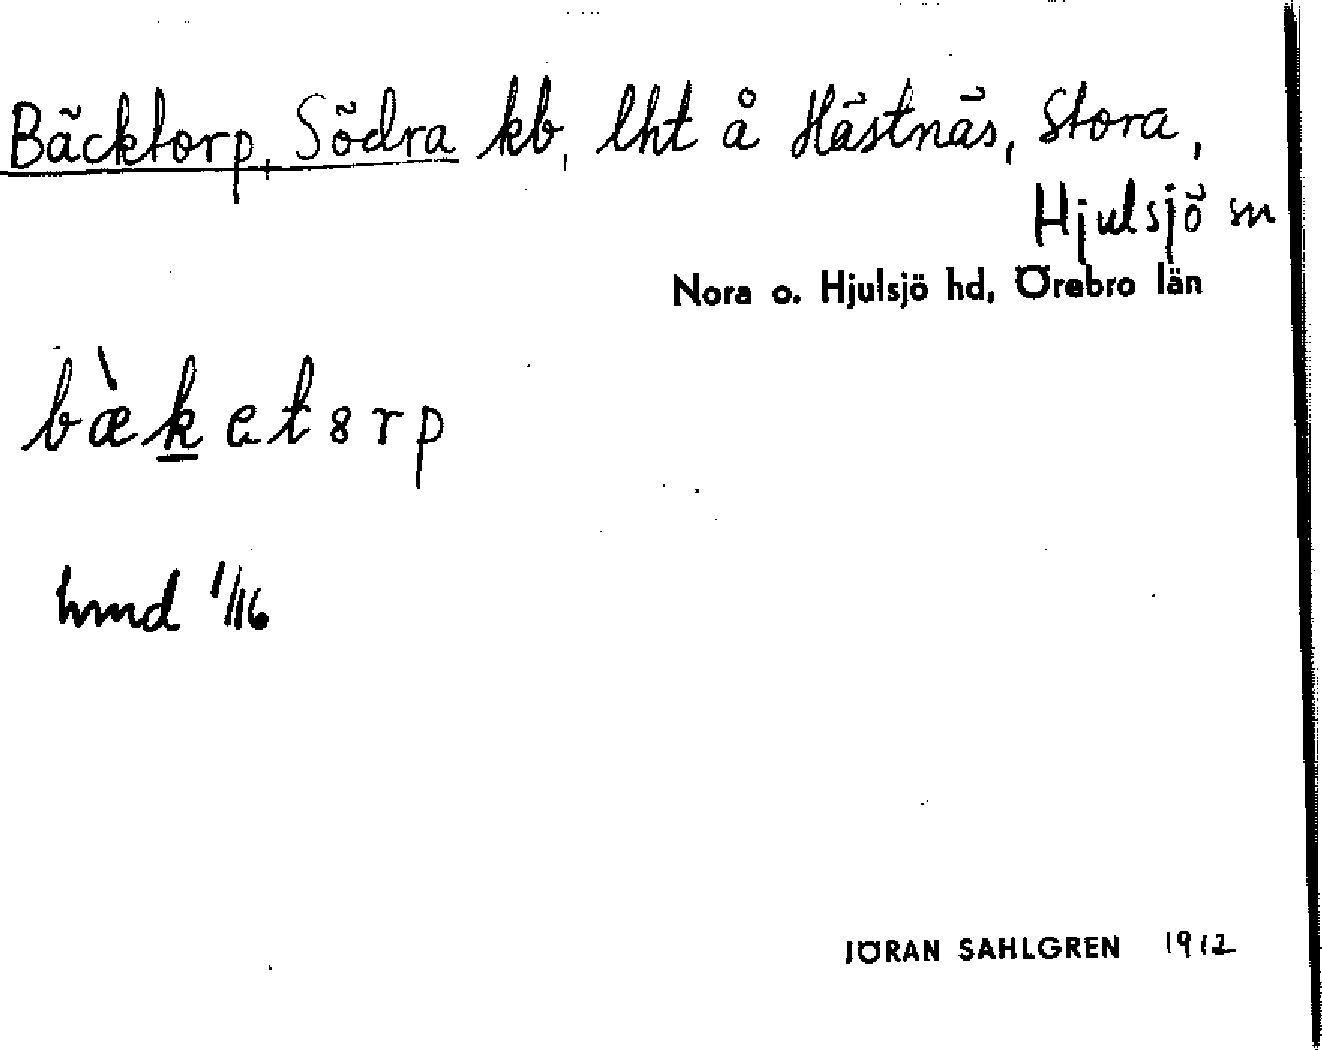 Bäcktorp, Södra kb, lht å Hästnäs, Stora,
Hjulsjö sn
Nora o. Hjulsjö hd, Örebro län
bæ̀ketȣrp
hmd 1/116
JÖRAN SAHLGREN 1912